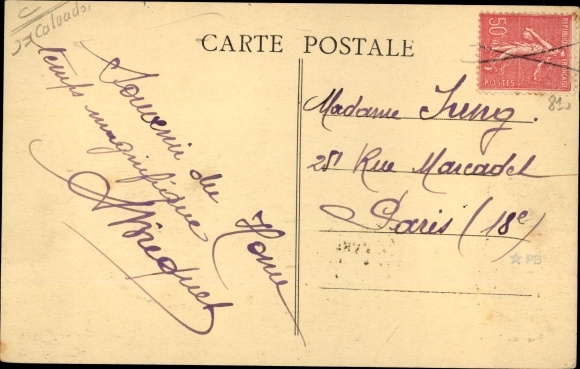 Calvados
CARTE POSTALE
50c
REPUBLIQUE FRANÇAISE
POSTES
Souvenir du Home
temps magnifique
Madame Jung.
25 Rue Marcadet
Paris (18e)
PB